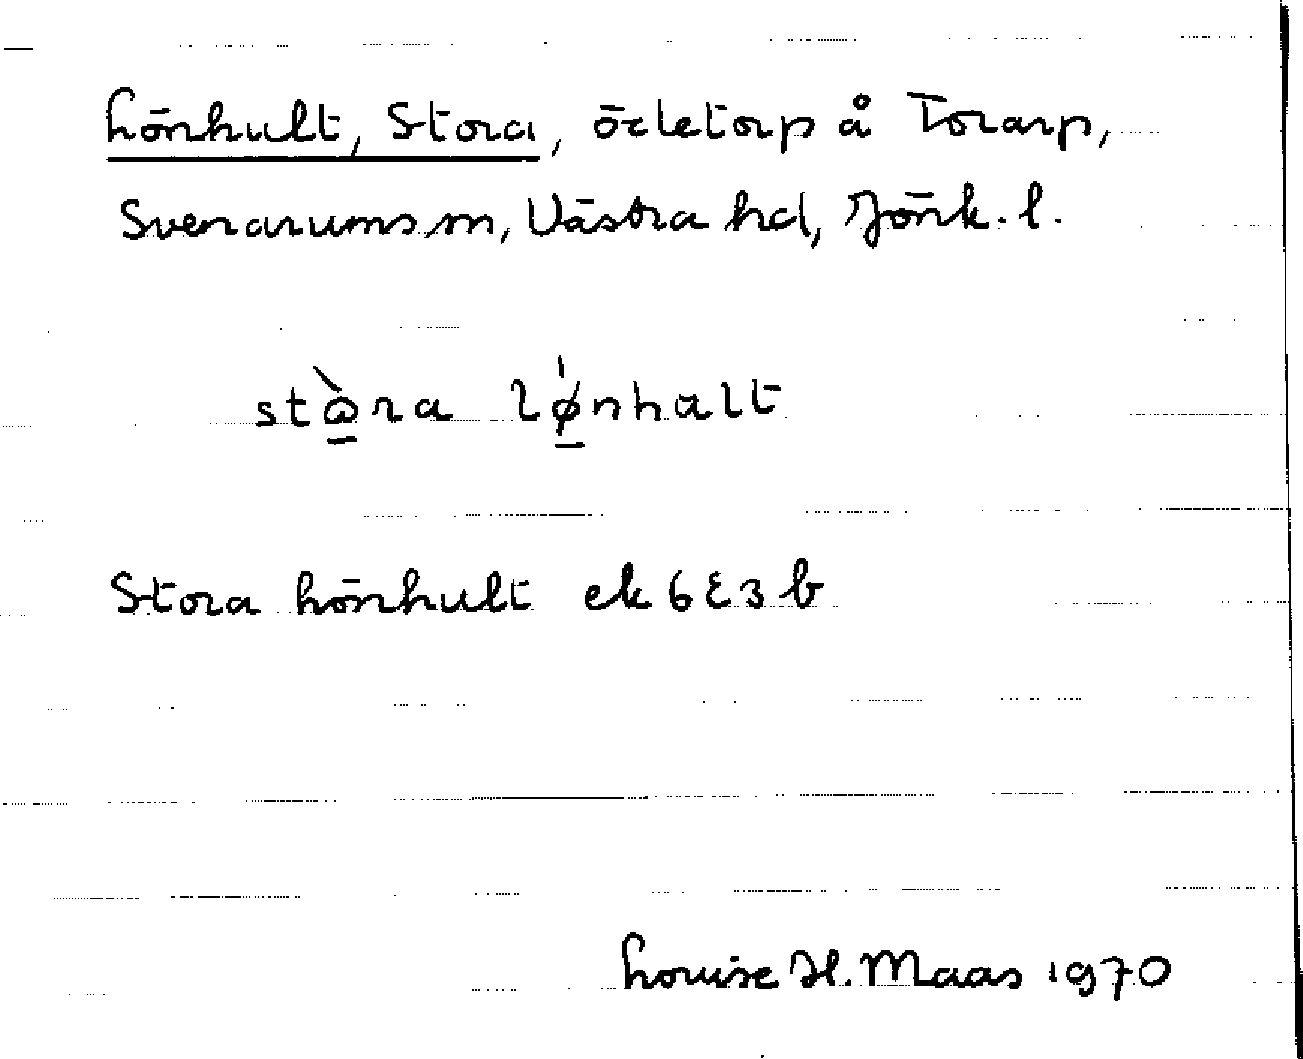 Lönhult, Stora, ödetorp å Torarp,
Svenarums sn, Västra hd, Jönk. l.
stòra lǿnhalt
Stora Lönhult ek 6E3b
Louise H. Maas 1970